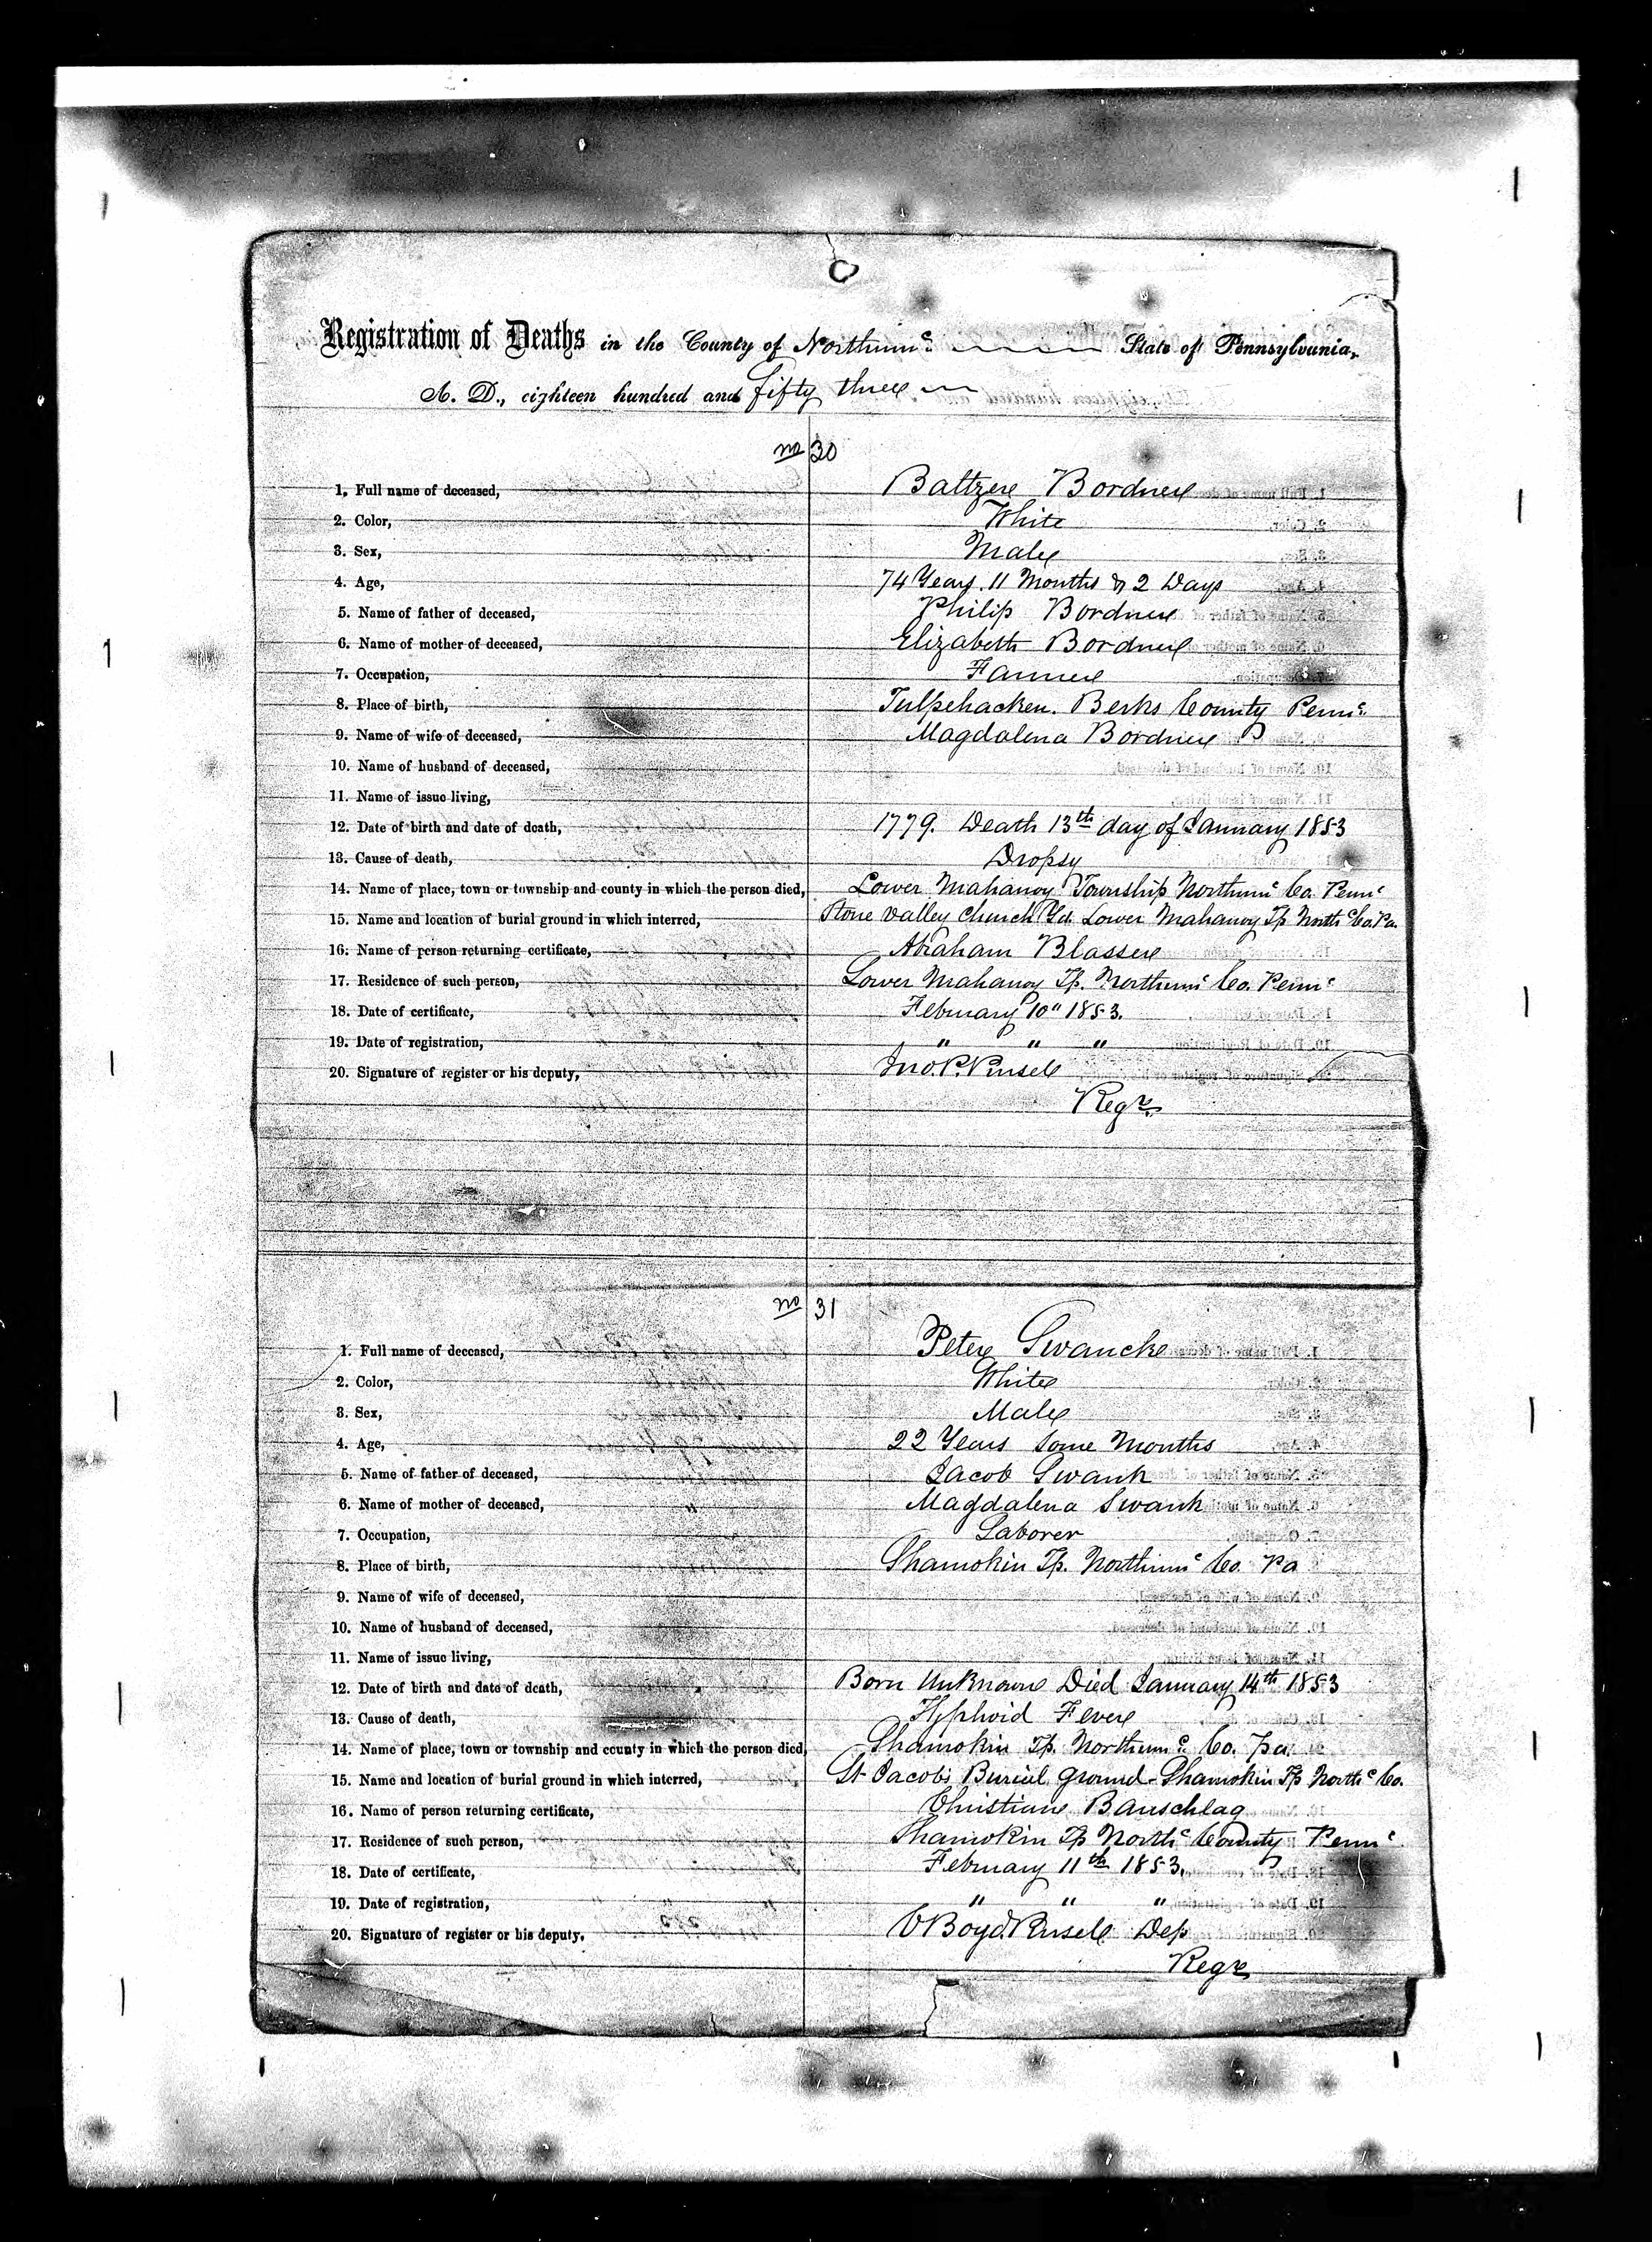 Registration of Deaths in the County of Northumᶜ State of Pennsylvania,
A. D., eighteen hundred and fifty three
no 30
1. Full name of deceased, Baltzer Bordner
2. Color, White
3. Sex, Male
4. Age, 74 Years 11 Months & 2 Days
5. Name of father of deceased, Philip Bordner
6. Name of mother of deceased, Elizabeth Bordner
7. Occupation, Farmer
8. Place of birth, Tulpehacken. Berks County Pennᶜ
9. Name of wife of deceased, Magdalena Bordner
10. Name of husband of deceased,
11. Name of issue living,
12. Date of birth and date of death, 1779. Death 13th day of January 1853
13. Cause of death, Dropsy
14. Name of place, town or township and county in which the person died, Lower Mahanoy Township Northumᶜ Co. Pennᶜ
15. Name and location of burial ground in which interred, Stone Valley Church Yd. Lower Mahanoy Tp Northᶜ Co. Pa.
16. Name of person returning certificate, Abraham Blasser
17. Residence of such person, Lower Mahanoy Tp. Northumᶜ Co. Pennᶜ
18. Date of certificate, February 10" 1853.
19. Date of registration, " " "
20. Signature of register or his deputy, Jno. P. Pursel
Regr.
no 31
1. Full name of deceased, Peter Swanck
2. Color, White
3. Sex, Male
4. Age, 22 Years some Months
5. Name of father of deceased, Jacob Swank
6. Name of mother of deceased, Magdalena Swank
7. Occupation, Laborer
8. Place of birth, Shamokin Tp. Northumᶜ Co. Pa
9. Name of wife of deceased,
10. Name of husband of deceased,
11. Name of issue living,
12. Date of birth and date of death, Born Unknown Died January 14th 1853
13. Cause of death, Typhoid Fever
14. Name of place, town or township and county in which the person died, Shamokin Tp. Northumᶜ Co. Pa.
15. Name and location of burial ground in which interred, St Jacobs Burial ground Shamokin Tp Northᶜ Co.
16. Name of person returning certificate, Christian Bauschlag
17. Residence of such person, Shamokin Tp Northᶜ County Pennᶜ
18. Date of certificate, February 11th 1853.
19. Date of registration, " " "
20. Signature of register or his deputy. C Boyd Pursel Dep
Regr